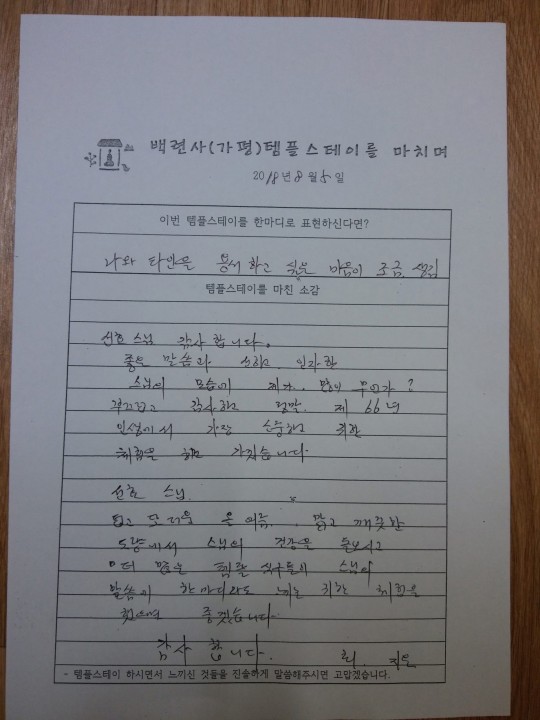 백련사(가평)템플스테이를 마치며
2018년 8월 5일
이번 템플스테이를 한마디로 표현하신다면?
나와 타인을 용서하고 싶은 마음이 조금 생김
템플스테이를 마친 소감
선효 스님 감사합니다.
좋은 말씀과 인자한
스님의 모습에 제가. 무언가?
감사하고 정말. 제 66년
인생에서 가장 소중하고 귀한
체험을 하고 가겠습니다
선효 스님.
덥고 무더운 올 여름.. 맑고 깨끗한
도량에서 스님의 건강을 돌보시고
더 많은 템플 식구들이 스님의
말씀이 한마디라도 귀한 체험을
했으면 좋겠습니다
감사합니다.
- 템플스테이 하시면서 느끼신 것들을 진솔하게 말씀해주시면 고맙겠습니다.